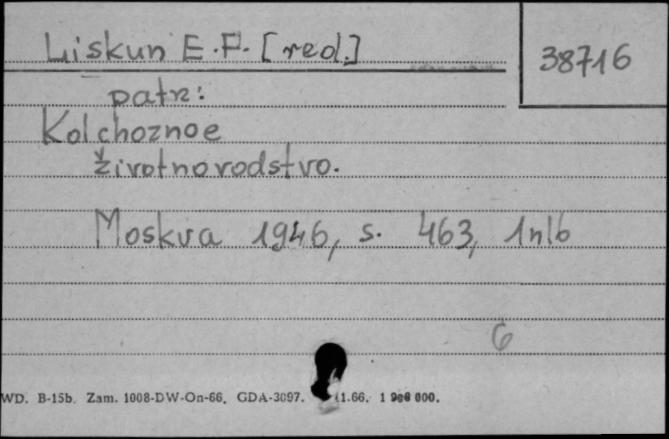 Liskun E.F. [red.]
38716
patrz:
Kolchoznoe
životnovodstvo.
Moskva 1946, s. 463, 1nlb
6
WD. B-15b. Zam. 1008-DW-On-66. GDA-3097. 11.66. 000.